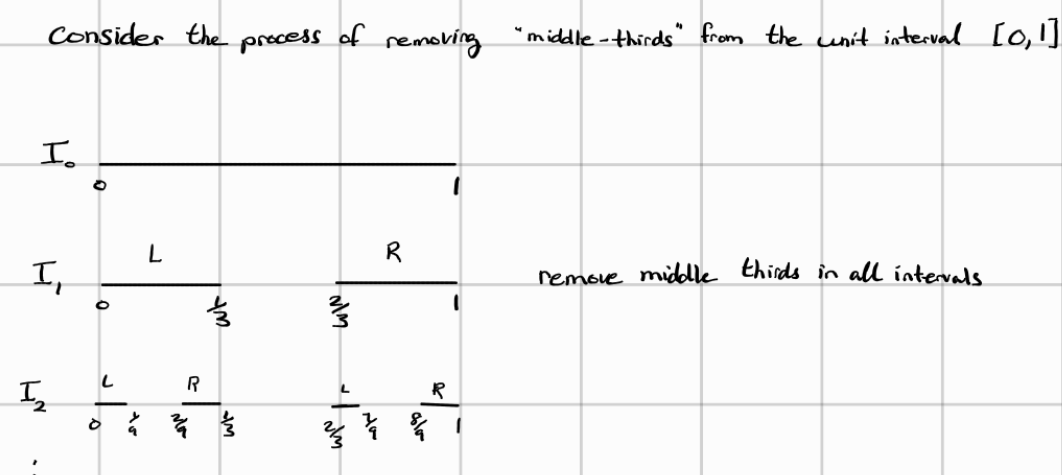 Consider the process of removing "middle-thirds" from the unit interval [0,1]
I₀
0 1
L R
I₁ remove middle thirds in all intervals
0 1/3 2/3 1
L R L R
I₂
0 1/9 2/9 1/3 2/3 7/9 8/9 1
⋮